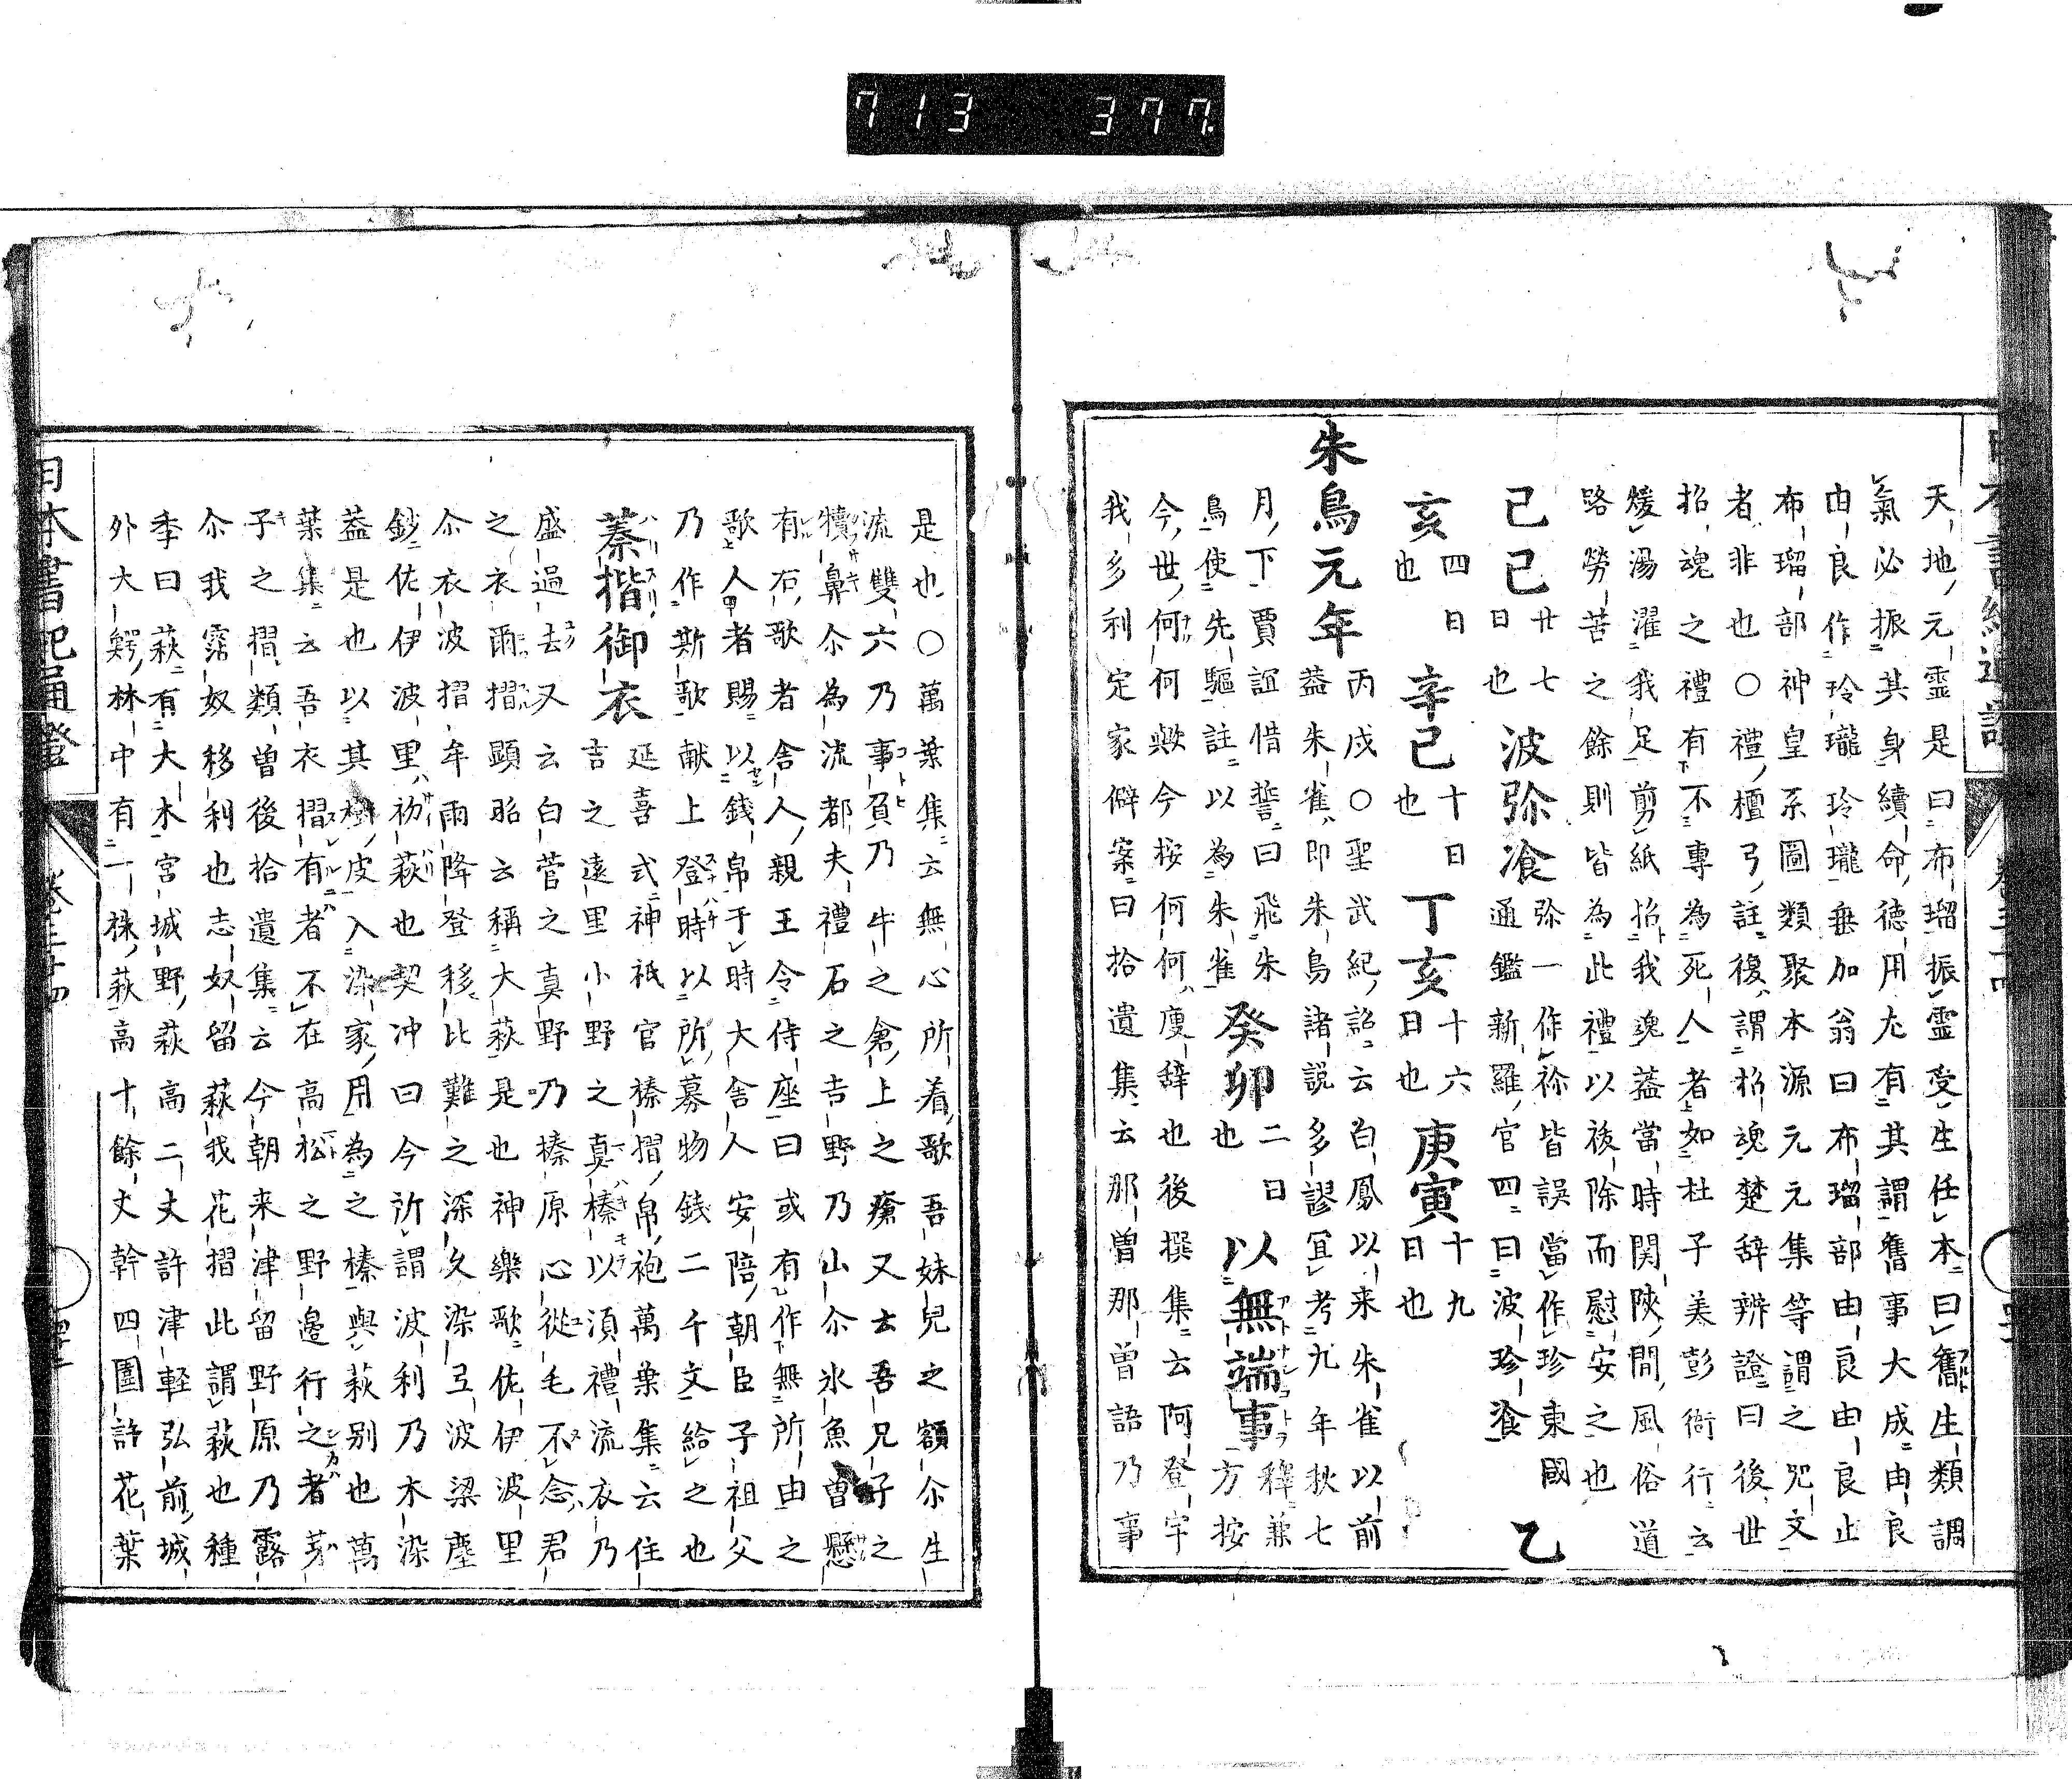 713 377.
天地元霊是曰布瑠振霊受生任本曰舊生類調
氣必振其身續命德用尤有其謂舊事大成由良
由良作玲瓏玲瓏垂加翁曰布瑠部由良由良止
布瑠部神皇系圖類聚本源元元集等謂之咒文
者非也○禮檀弓註復謂招魂楚辞辨證曰後世
招魂之禮有不專為死人者如杜子美彭衙行云
煖湯濯我足剪紙招我魂蓋當時関陝間風俗道
路勞苦之餘則皆為此禮以祓除而慰安之也
己巳廿七日也波弥飡弥一作祢皆誤當作珍東國通鑑新羅官四曰波珍飡乙
亥四日也辛巳十日也丁亥十六日也庚寅十九日也
朱鳥元年丙戌○聖武紀詔云白鳳以来朱雀以前
蓋朱雀即朱鳥諸説多謬冝考九年秋七
月下賈誼借誓曰飛朱鳥使先驅註以為朱雀癸卯二日也以無端事釋兼方按
今世何何歟今按何何廋辞也後撰集云阿登宇
我多利定家僻案曰拾遺集云那曽那曽語乃事
日本書紀通證
卷三十四
是也○萬葉集云無心所着歌吾妹兒之額尒生
流雙六乃事負乃牛之倉上之瘡又云吾兄子之
犢鼻尒為流都夫禮石之吉野乃山尒氷魚曽懸
有右歌者舎人親王令侍座曰或有作無所由之
歌人者賜以錢帛于時大舎人安陪朝臣子祖父
乃作斯歌献上登時以所募物銭二千文給之也
蓁揩御衣延喜式神祇官榛摺帛袍萬葉集云住
吉之遠里小野之真榛以湏禮流衣乃
盛過去又云白菅之真野乃榛原心從毛不念君
之衣爾摺顕昭云稱大萩是也神樂歌佐伊波里
尒衣波摺牟雨降登移比難之深久染弖波梁塵
鈔佐伊波里初萩也契冲曰今所謂波利乃木染
蓋是也以其樹皮入染家用為之榛與萩別也萬
葉集云吾衣摺有者不在高松之野邊行之者芽
子之摺類曽後拾遺集云今朝来津留野原乃露
尒我霑奴移利也志奴留萩我花摺此謂萩也種
季曰萩有大木宮城野萩高二丈許津軽弘前城
外大鰐林中有一株萩高十餘丈幹四圍許花葉